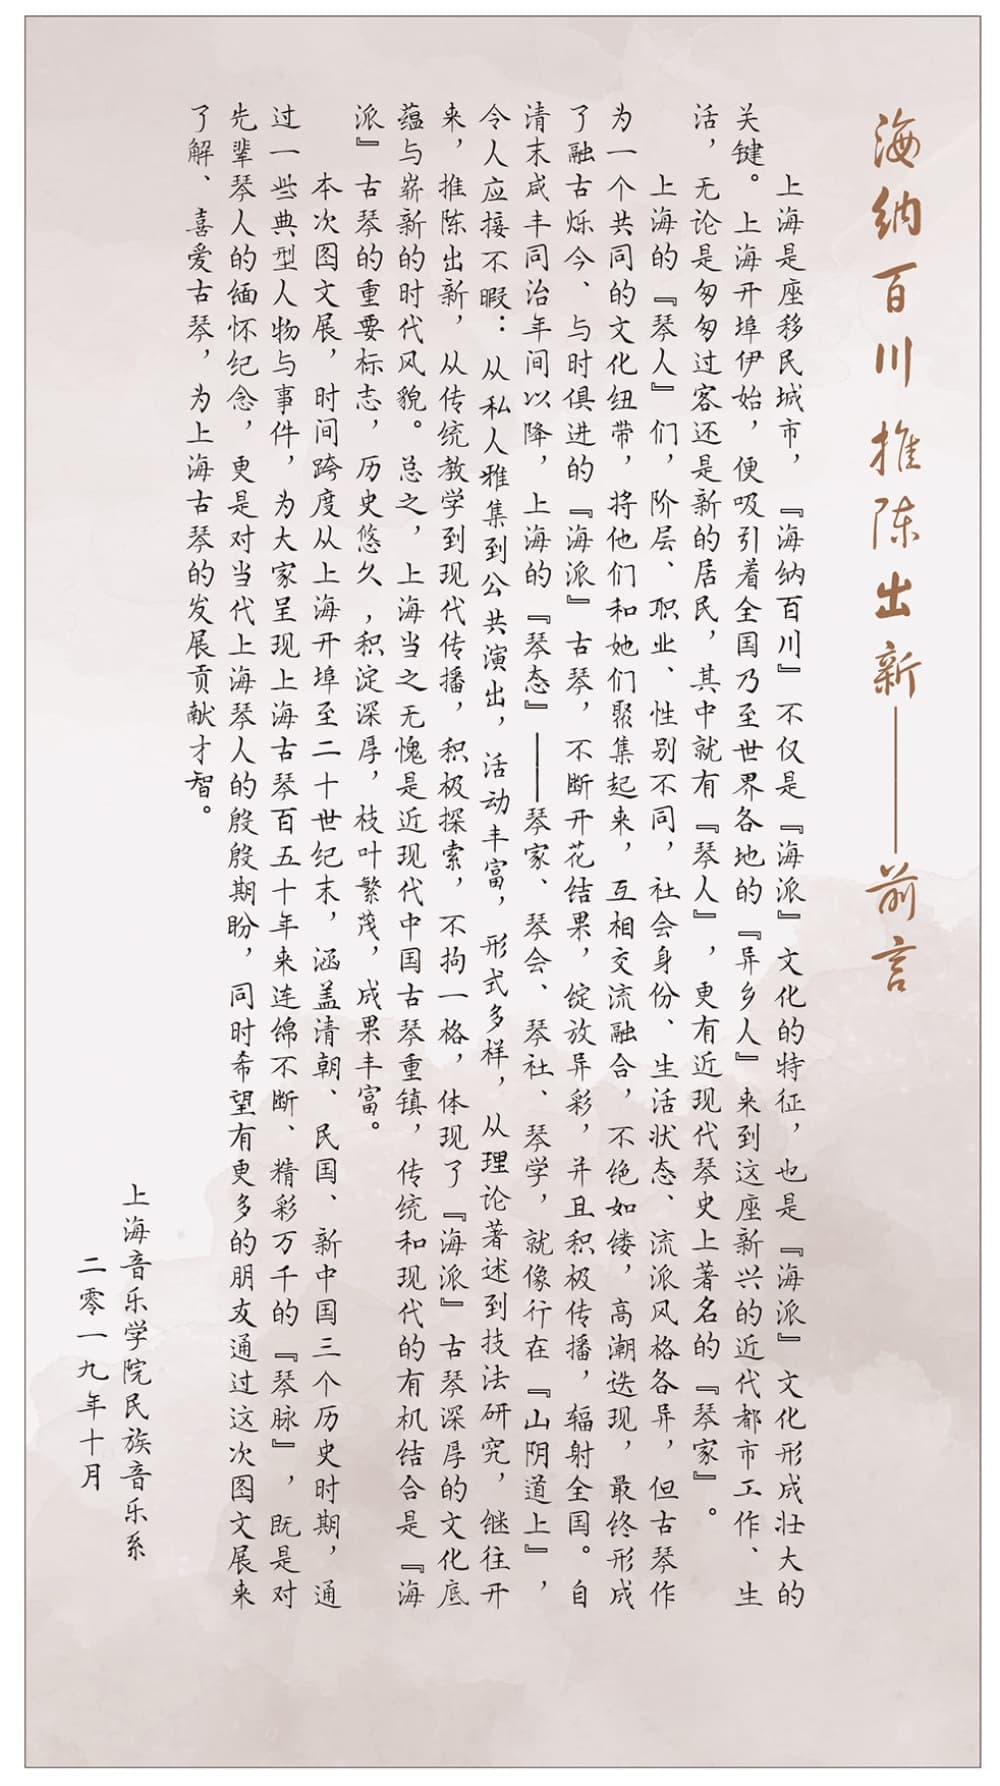 海纳百川 推陈出新——前言
上海是座移民城市，『海纳百川』不仅是『海派』文化的特征，也是『海派』文化形成壮大的
关键。上海开埠伊始，便吸引着全国乃至世界各地的『异乡人』来到这座新兴的近代都市工作、生
活，无论是匆匆过客还是新的居民，其中就有『琴人』，更有近现代琴史上著名的『琴家』。
上海的『琴人』们，阶层、职业、性别不同，社会身份、生活状态、流派风格各异，但古琴作
为一个共同的文化纽带，将他们和她们聚集起来，互相交流融合，不绝如缕，高潮迭现，最终形成
了融古烁今、与时俱进的『海派』古琴，不断开花结果，绽放异彩，并且积极传播，辐射全国。自
清末咸丰同治年间以降，上海的『琴态』——琴家、琴会、琴社、琴学，就像行在『山阴道上』，
令人应接不暇：从私人雅集到公共演出，活动丰富，形式多样，从理论著述到技法研究，继往开
来，推陈出新，从传统教学到现代传播，积极探索，不拘一格，体现了『海派』古琴深厚的文化底
蕴与崭新的时代风貌。总之，上海当之无愧是近现代中国古琴重镇，传统和现代的有机结合是『海
派』古琴的重要标志，历史悠久,积淀深厚，枝叶繁茂，成果丰富。
本次图文展，时间跨度从上海开埠至二十世纪末，涵盖清朝、民国、新中国三个历史时期，通
过一些典型人物与事件，为大家呈现上海古琴百五十年来连绵不断、精彩万千的『琴脉』，既是对
先辈琴人的缅怀纪念，更是对当代上海琴人的殷殷期盼，同时希望有更多的朋友通过这次图文展来
了解、喜爱古琴，为上海古琴的发展贡献才智。
上海音乐学院民族音乐系
二零一九年十月